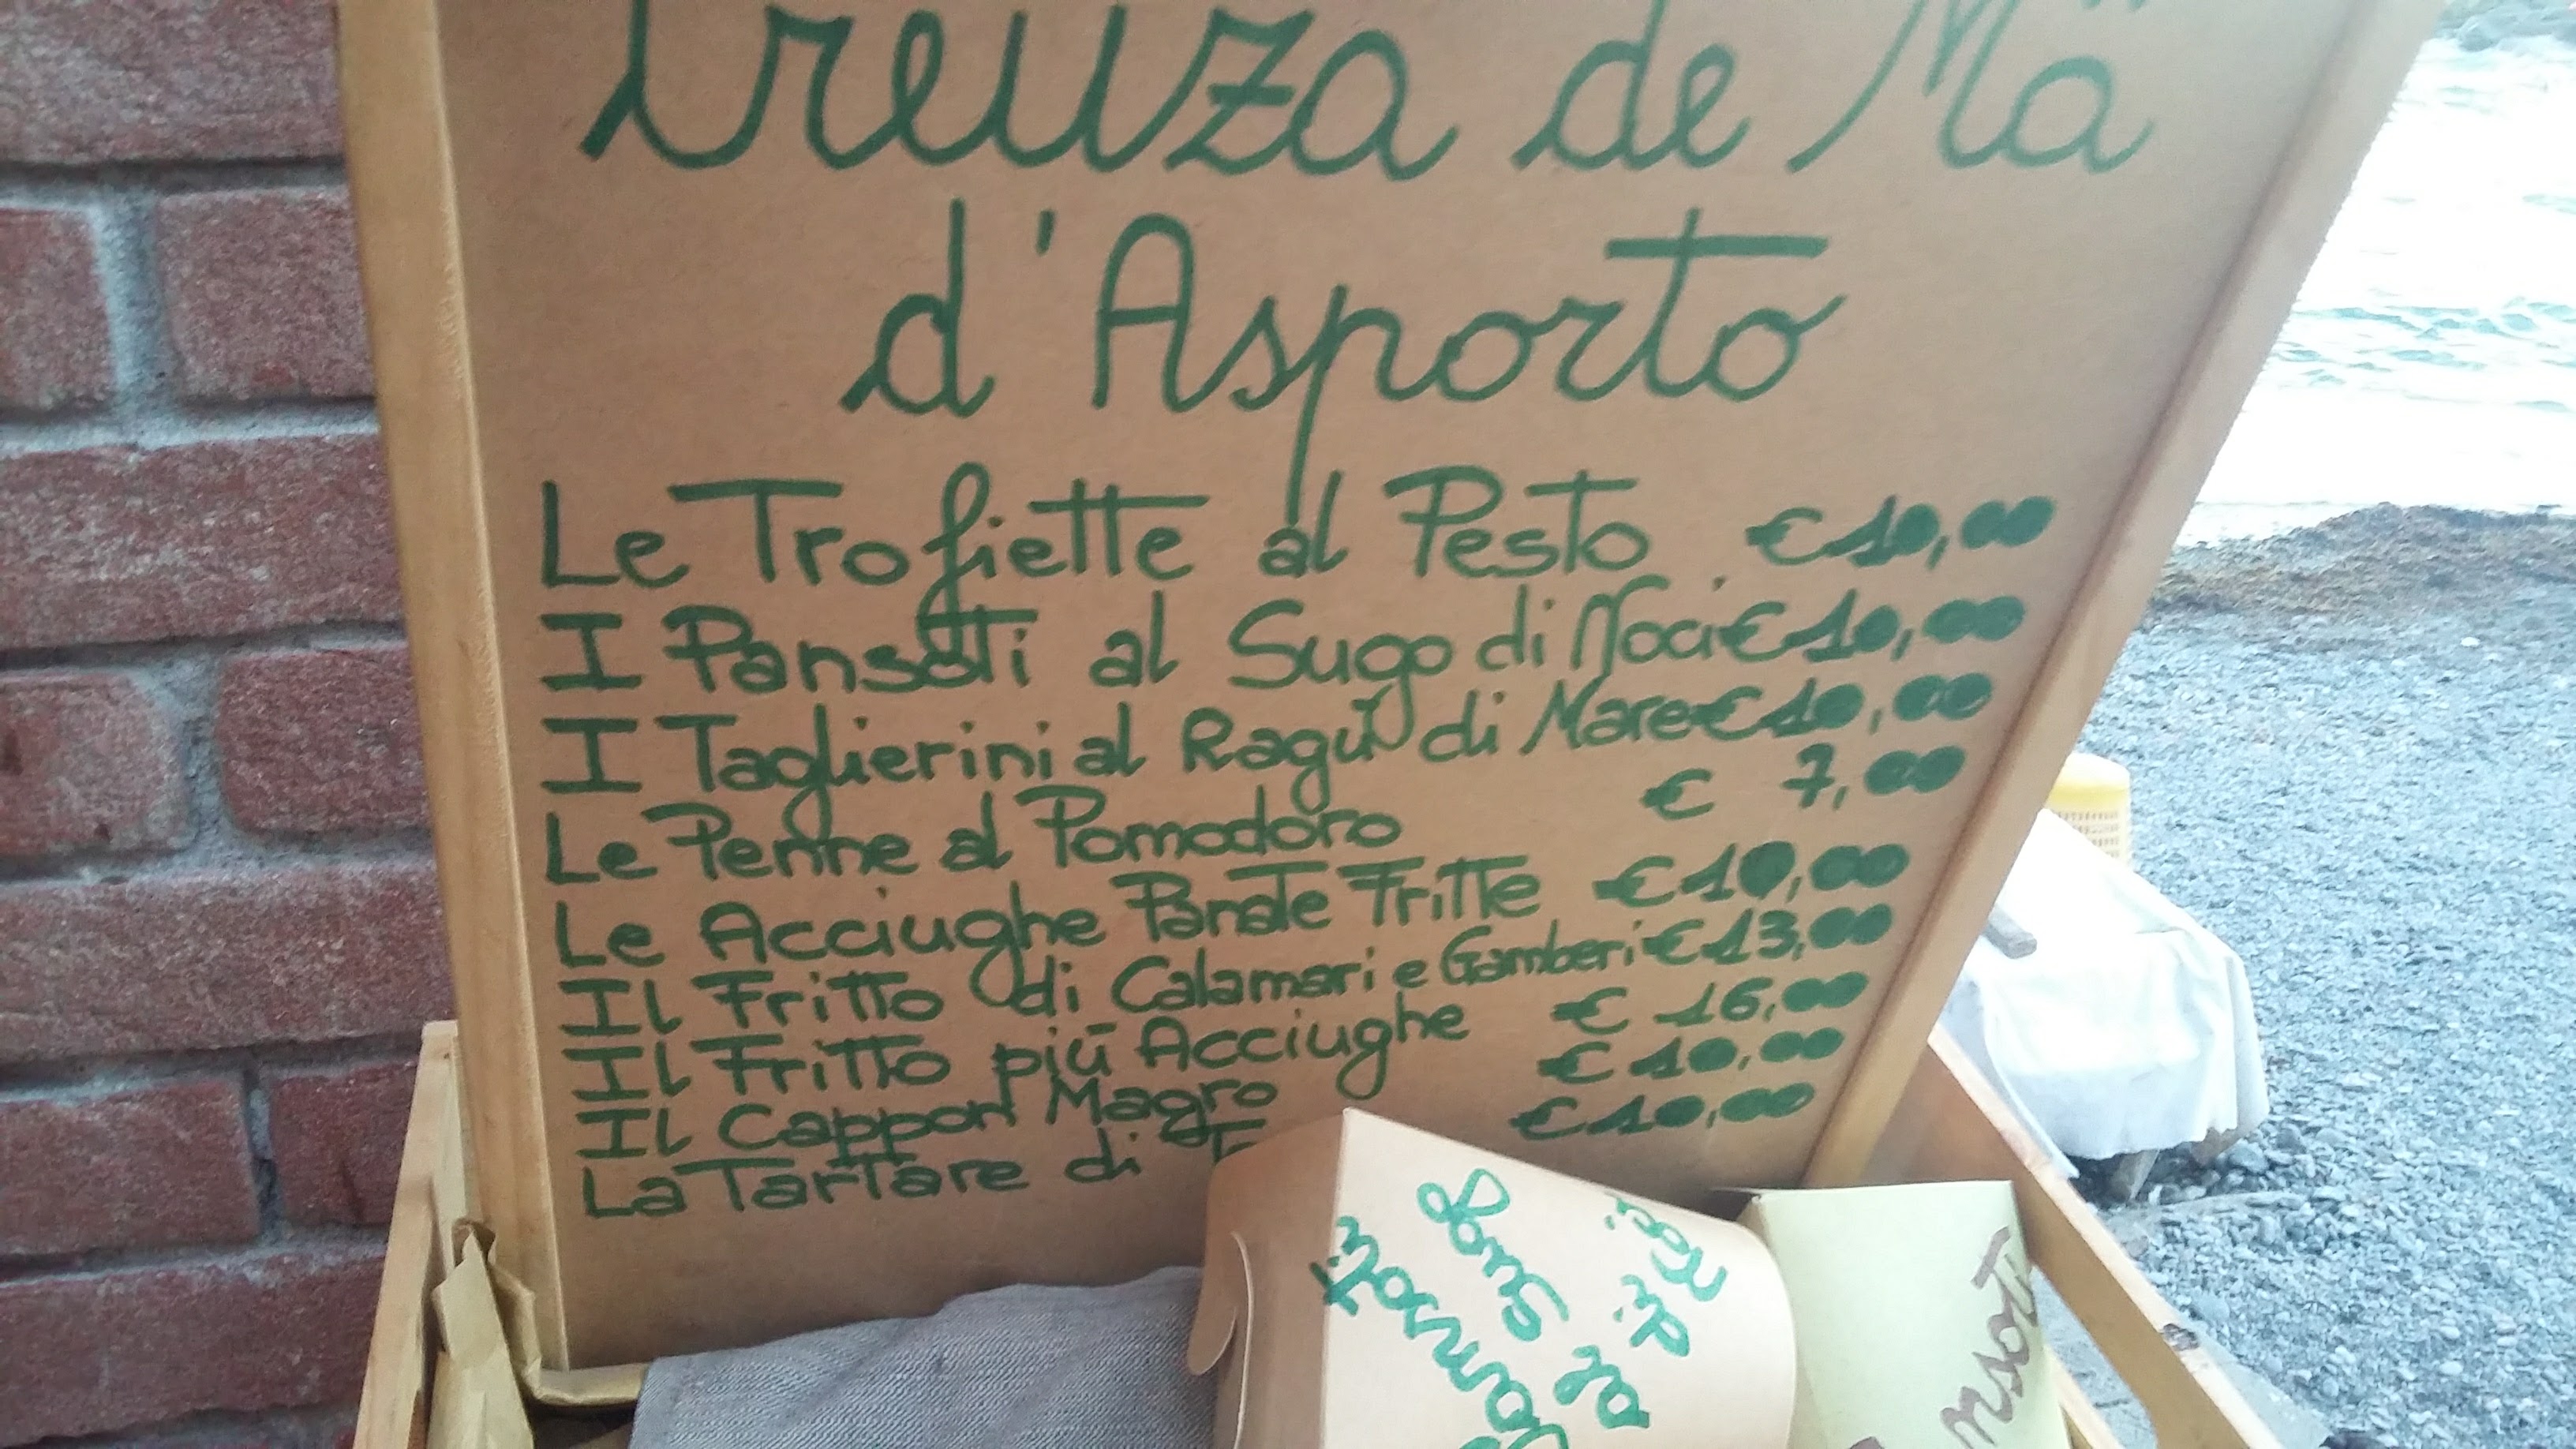 Creuza de Mä"
d'Asporto
Le Trofiette al Pesto € 10,00
I Pansoti al Sugo di Noci € 10,00
I Taglierini al Ragù di Mare € 10,00
Le Penne al Pomodoro € 7,00
Le Acciughe Panate Fritte € 10,00
Il Fritto di Calamari e Gamberi € 13,00
Il Fritto più Acciughe € 16,00
Il Cappon Magro € 10,00
La Tartare di € 10,00
Pansoti
al Sugo
di Noci